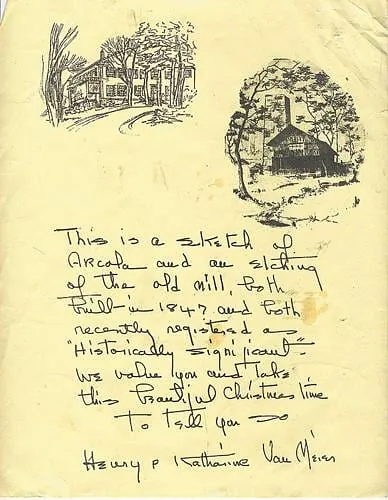 This is a sketch of
Arcola and an etching
of the old mill, both
built in 1847 and both
recently registered as
"Historically significant".
We value you and take
this beautiful Christmas time
To Tell you so
Henry & Katharine Van Meier